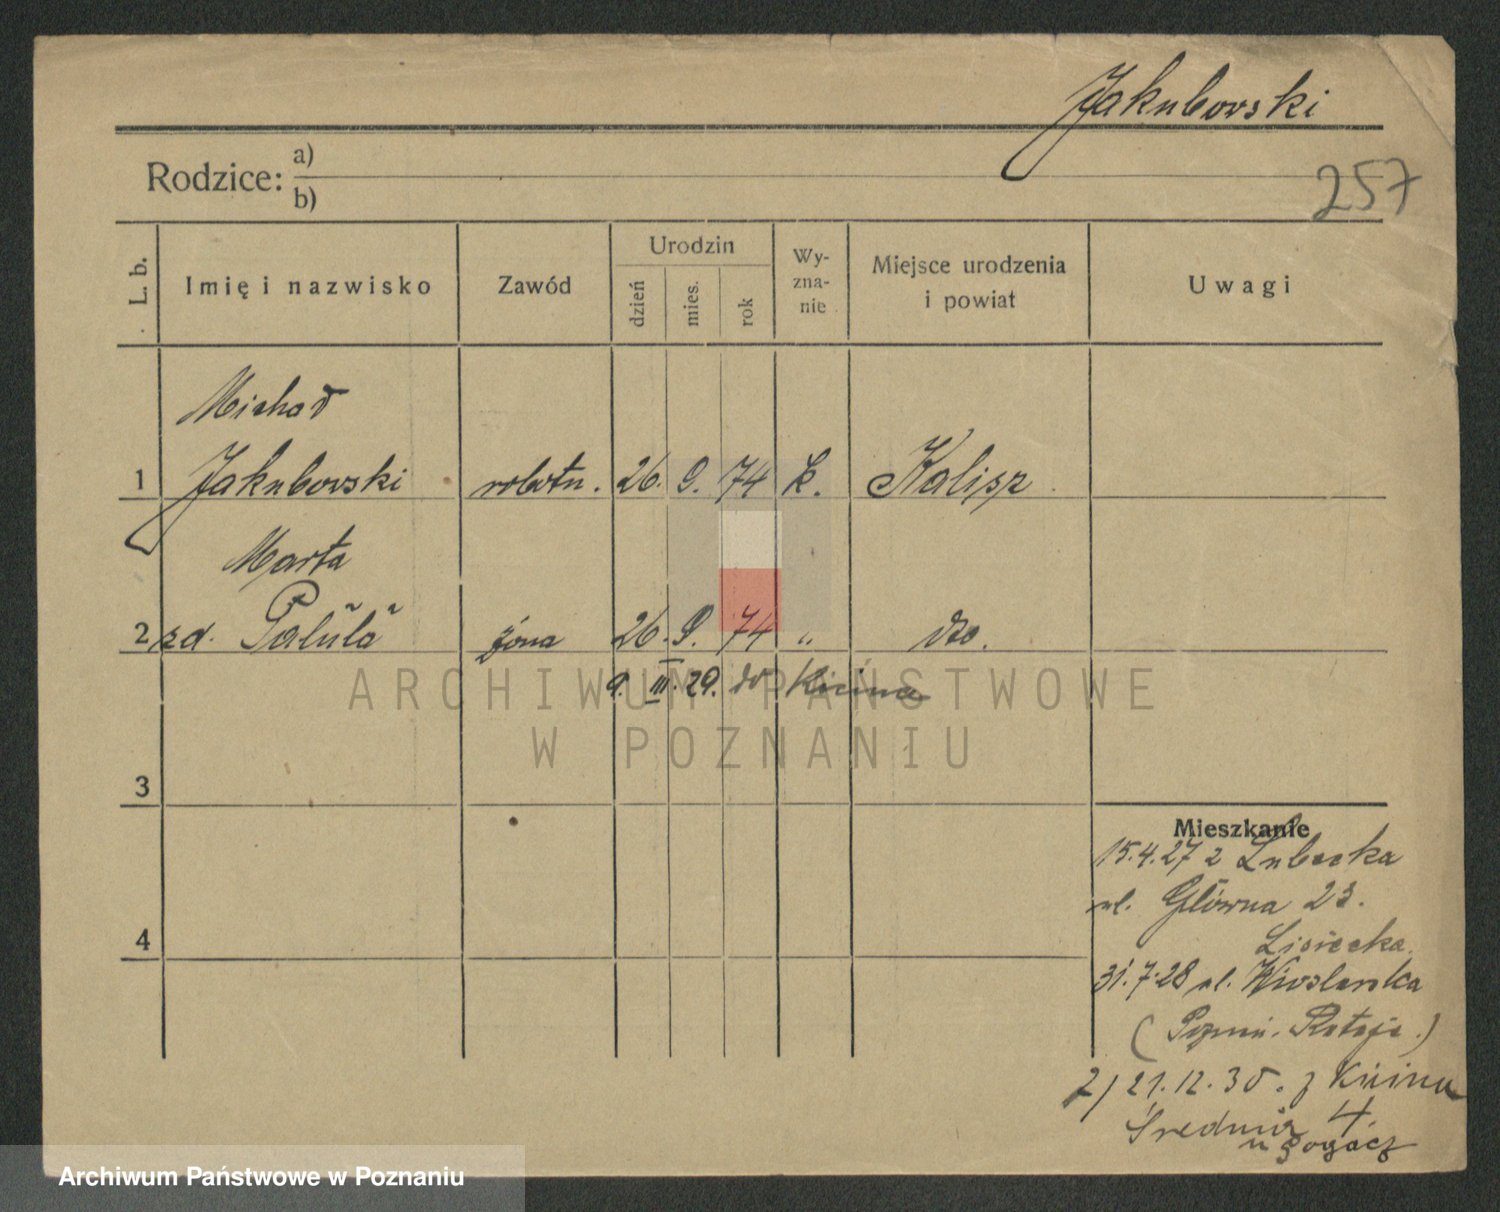 Jakubowski
Rodzice: a)
b)
257
L. b.
Imię i nazwisko
Zawód
Urodzin
dzień
mies.
rok
Wy-
zna-
nie
Miejsce urodzenia
i powiat
Uwagi
Michał
1 Jakubowski robotn. 26. 9. 74 k. Kalisz
Marta
2 zd. żona 26. 9. 74 " dto.
9. III. 29. do Kicina
3
4
Mieszkanie
15.4.27 z Lubecka
ul. Główna 23.
Lisiecka
31.7.28 ul. Wioślarska
(Poznań. Rataje.)
2) 21.12.30. z Kicina
Średnia 4
u Fogacz
ARCHIWUM PAŃSTWOWE
W POZNANIU
Archiwum Państwowe w Poznaniu